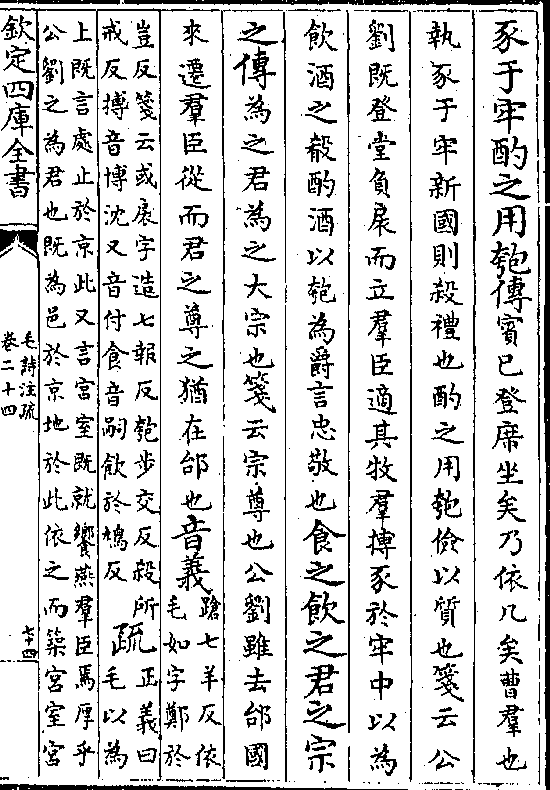 豕于牢酌之用匏傳賓已登席坐矣乃依几矣曹羣也
執豕于牢新國則殺禮也酌之用匏儉以質也箋云公
劉既登堂負扆而立羣臣適其牧羣搏豕於牢中以為
飲酒之殽酌酒以匏為爵言忠敬也食之飲之君之宗
之傳為之君為之大宗也箋云宗尊也公劉雖去邰國
來遷羣臣從而君之尊之猶在邰也音義
蹌七羊反依
毛如字鄭於
豈反箋云或扆字造七報反匏步交反殺所
戒反搏音博沈又音付食音嗣飲於鴆反
疏
正義曰
毛以為
上既言處止於京此又言宮室既就饗燕羣臣焉厚乎
公劉之為君也既為邑於京地於此依之而築宮室宮
欽定四庫全書
毛詩注疏
卷二十四
七十四